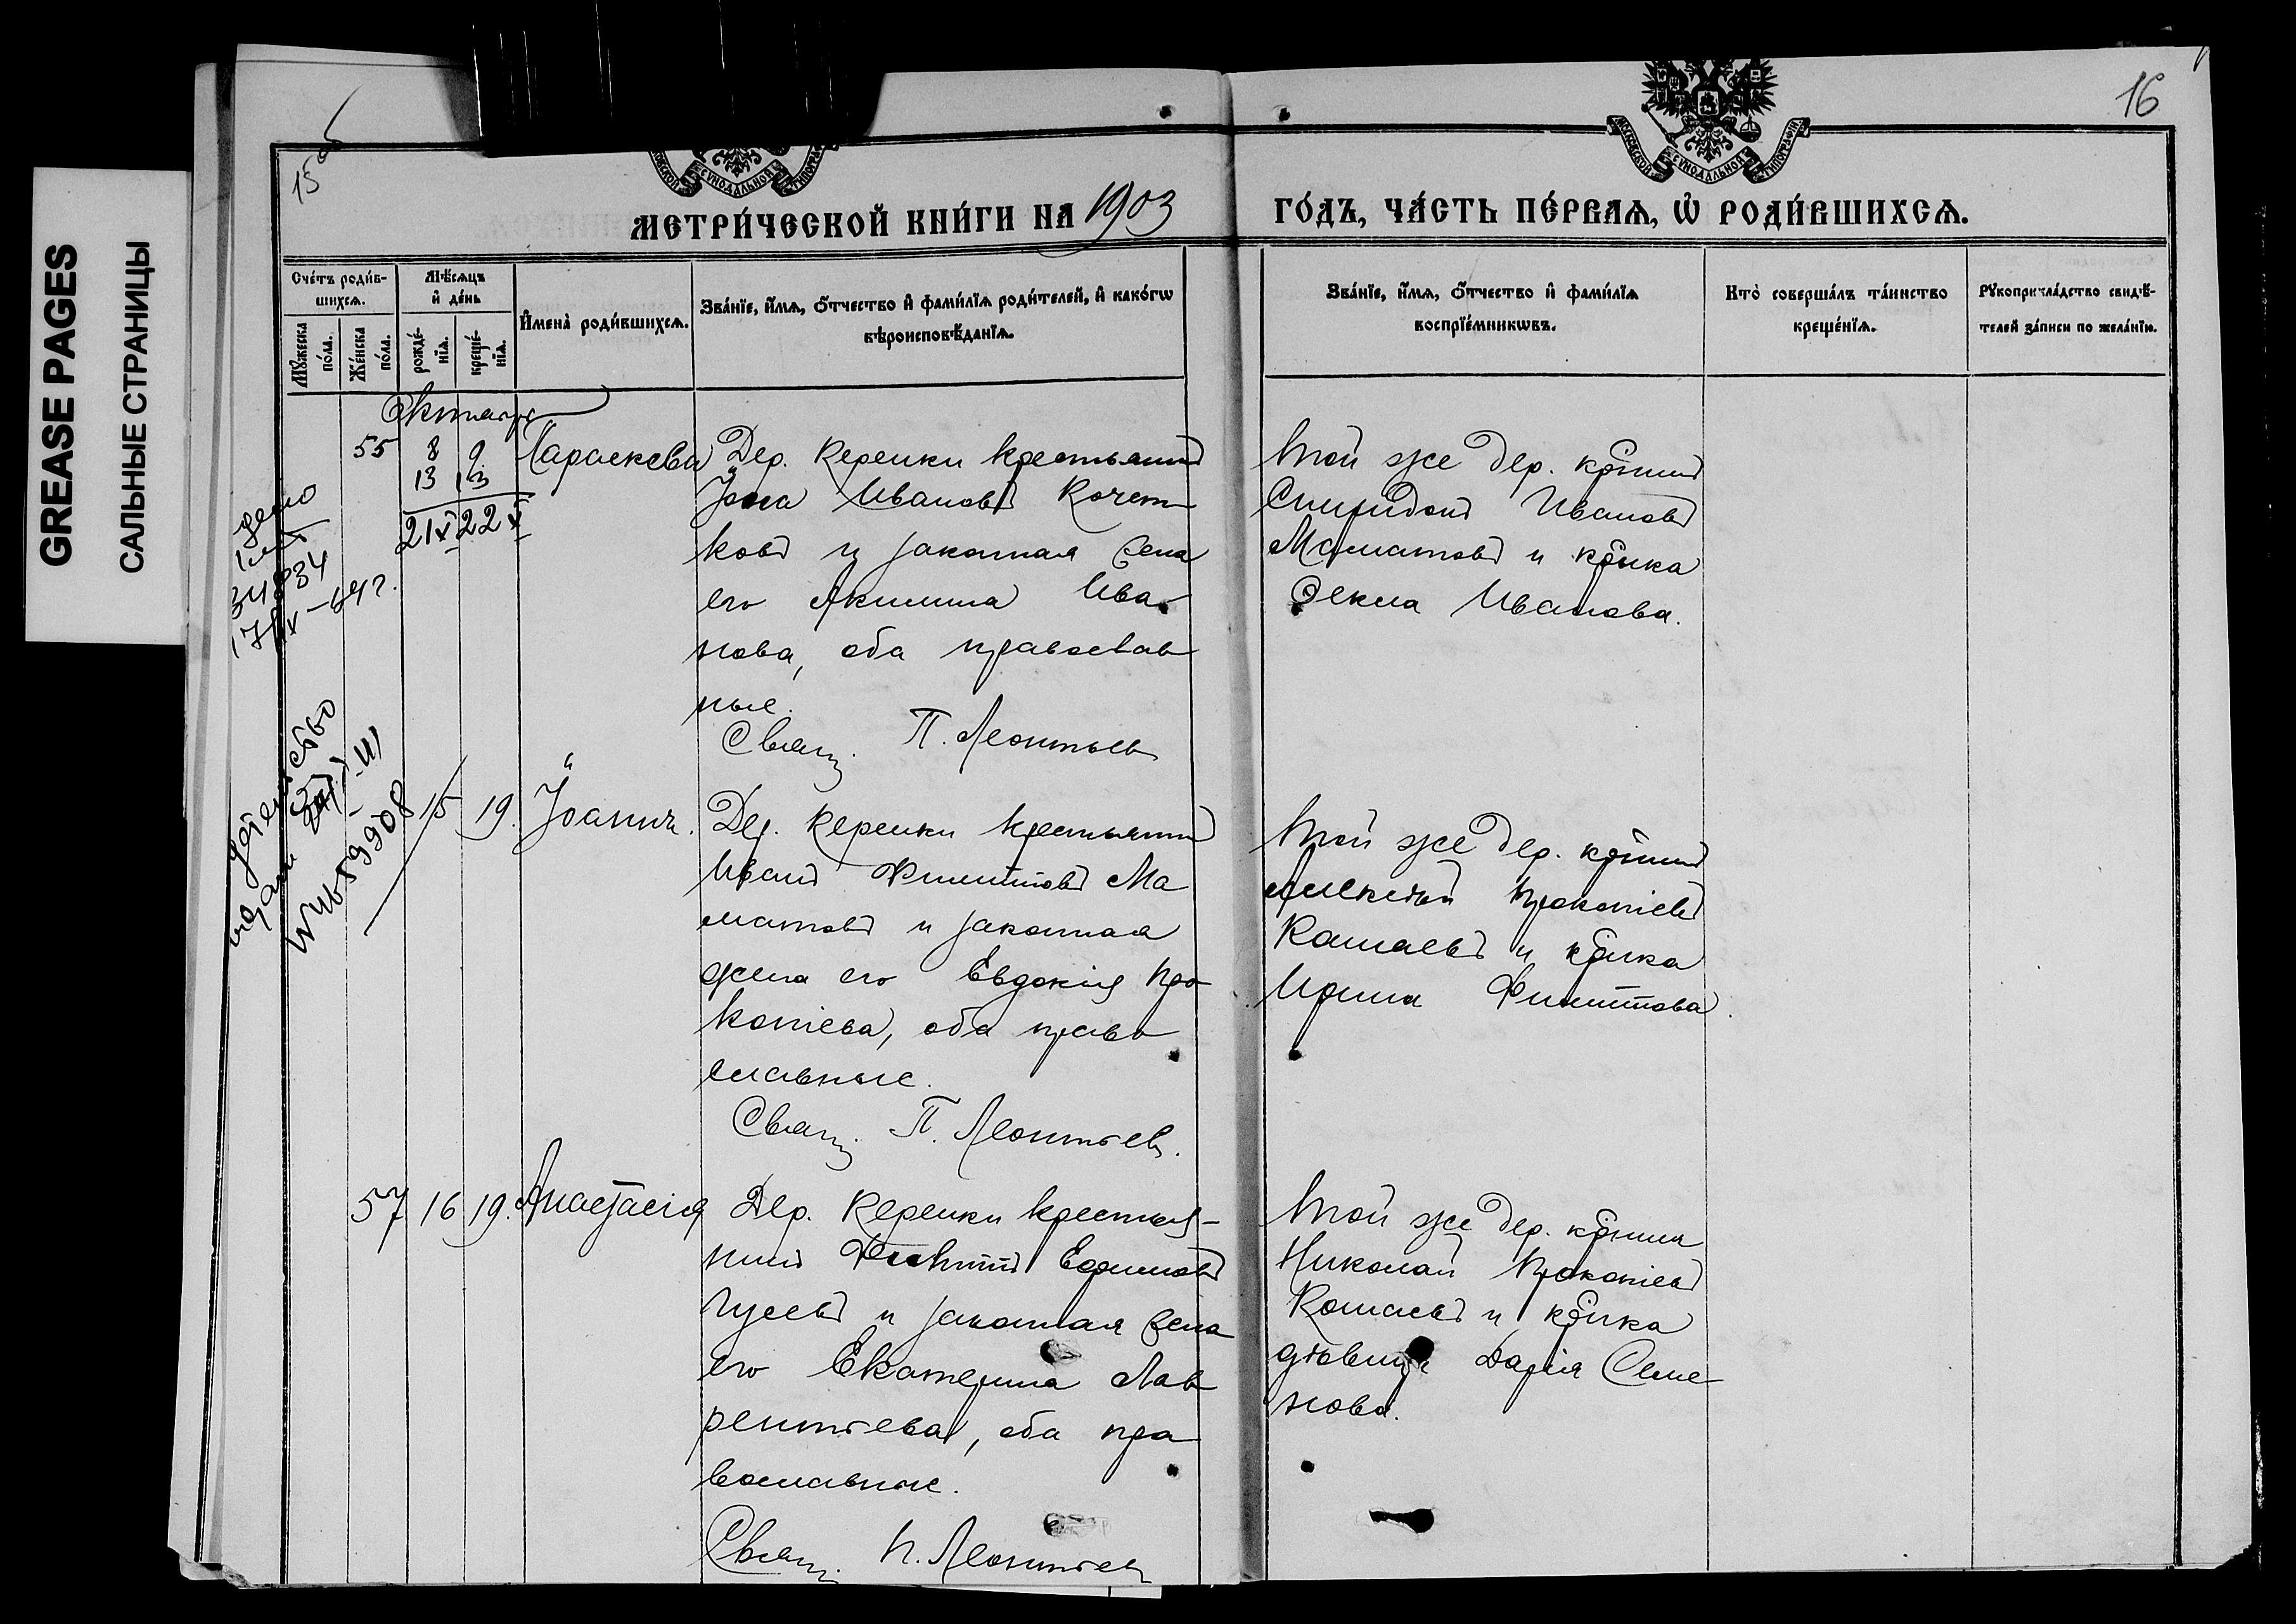 GREASE PAGES
САЛЬНЫЕ СТРАНИЦЫ
15об
16
МЕТРИ́ЧЕСКОЙ КНИ́ГИ НА 1903
ГО́ДЪ, ЧА́СТЬ ПЕ́РВАѦ, Ѡ҆ РОДИ́ВШИХСѦ.
Сче́тъ роди́в-
шихсѧ.
Мѣ́сѧцъ
и҆ де́нь
И҆мена̀ роди́вшихсѧ.
Зва́нїе, и҆́мѧ, ѻ҆́тчество и҆ фами́лїѧ роди́телей, и҆ како́гѡ
вѣроисповѣ́данїѧ.
Мꙋ́жеска
по́ла.
Же́нска
по́ла.
рожде́-
нїѧ.
креще́-
нїѧ.
Зва́нїе, и҆́мѧ, ѻ҆́тчество и҆ фами́лїѧ
воспрїе́мникѡвъ.
Кто̀ соверша́лъ та́инство
креще́нїѧ.
Рꙋкоприкла́дство свидѣ́-
телей за́писи по жела́нїю.
Октябрь
55 8 9 Параскева
13 13
21 X 22 X
Дер. Керенки крестьянинъ
Іона Ивановъ Кочет-
ковъ и законная жена
его Акилина Ива-
нова, оба православ
ные.
Свящ. П. Леонтьев
Той же дер. кр-нинъ
Спиридонъ Ивановъ
Маматовъ и кр-нка
Фекла Иванова.
34834
15 19. Іоаннъ.
Дер. Керенки крестьянинъ
Иванъ Филипповъ Ма
матовъ и законная
жена его Евдокія Про
копіева, оба право
славные.
Свящ. П. Леонтьев.
Той же дер. кр-нинъ
Алексѣй Прокопіевъ
Кашаевъ и кр-нка
Ирина Филиппова.
57 16 19. Анастасія
Дер. Керенки крестья-
нинъ Ефимовъ
Гусевъ и законная жена
его Екатерина Лав
рентьева, оба пра
вославные.
Свящ. П. Леонтьев
Той же дер. кр-нинъ
Николай Прокопіевъ
Кашаевъ и кр-нка
дѣвица Дарія Семе-
нова.